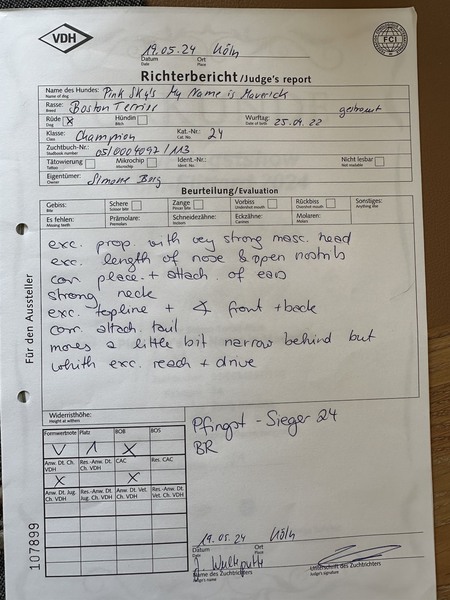 VDH
FCI
19.05.24 Köln
Datum Date Ort Place
Richterbericht/Judge's report
Name des Hundes: Name of dog Pink Sky's My Name is Maverick
Rasse: Breed Boston Terrier gestromt
Rüde Dog X Hündin Bitch Wurftag: Date of birth 25.04.22
Klasse: Class Champion Kat.-Nr.: Cat. No. 24
Zuchtbuch-Nr.: Studbook number 05/0004092/113
Tätowierung Tattooing Mikrochip Microchip Ident.-Nr.: Ident.-No. Nicht lesbar Not readable
Eigentümer: Owner Simone Borg
Beurteilung/Evaluation
Gebiss: Bite Schere Scissor bite Zange Pincer bite Vorbiss Undershot mouth Rückbiss Overshot mouth Sonstiges: Anything else
Es fehlen: Missing teeth Prämolare: Premolars: Schneidezähne: Incisors: Eckzähne: Canines: Molaren: Molars:
exc. prop. with very strong masc. head
exc. length of nose & open nostrils
corr. place. + attach. of ears
strong neck
exc. topline + ∢ front + back
corr. attach. tail
moves a little bit narrow behind but
whith exc. reach + drive
Für den Aussteller
Widerristhöhe: Height at withers
Pfingst - Sieger 24
BR
Formwertnote Platz BOB BOS
V 1 X
Anw. Dt. Ch. VDH Res.-Anw. Dt. Ch. VDH CAC Res. CAC
X X
Anw. Dt. Jug. Ch. VDH Res.-Anw. Dt. Jug. Ch. VDH Anw. Dt. Vet. Ch. VDH Res.-Anw. Dt. Vet. Ch. VDH
107899
19.05.24 Köln
Datum Date Ort Place
Name des Zuchtrichters Judge's name
Unterschrift des Zuchtrichters Judge's signature